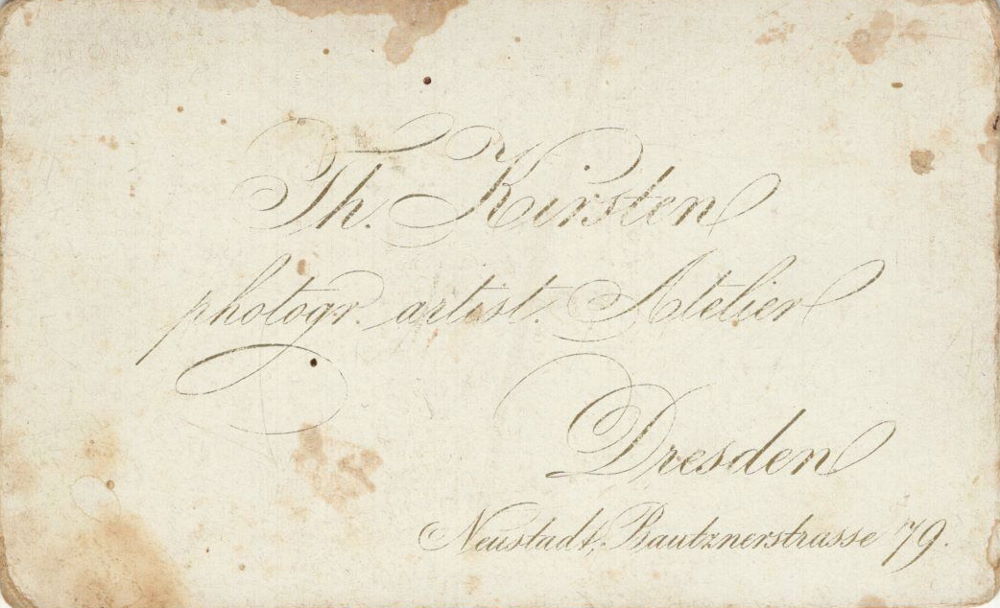 Th. Kirsten
photogr. artist. Atelier
Dresden
Neustadt, Bautznerstrasse 79.